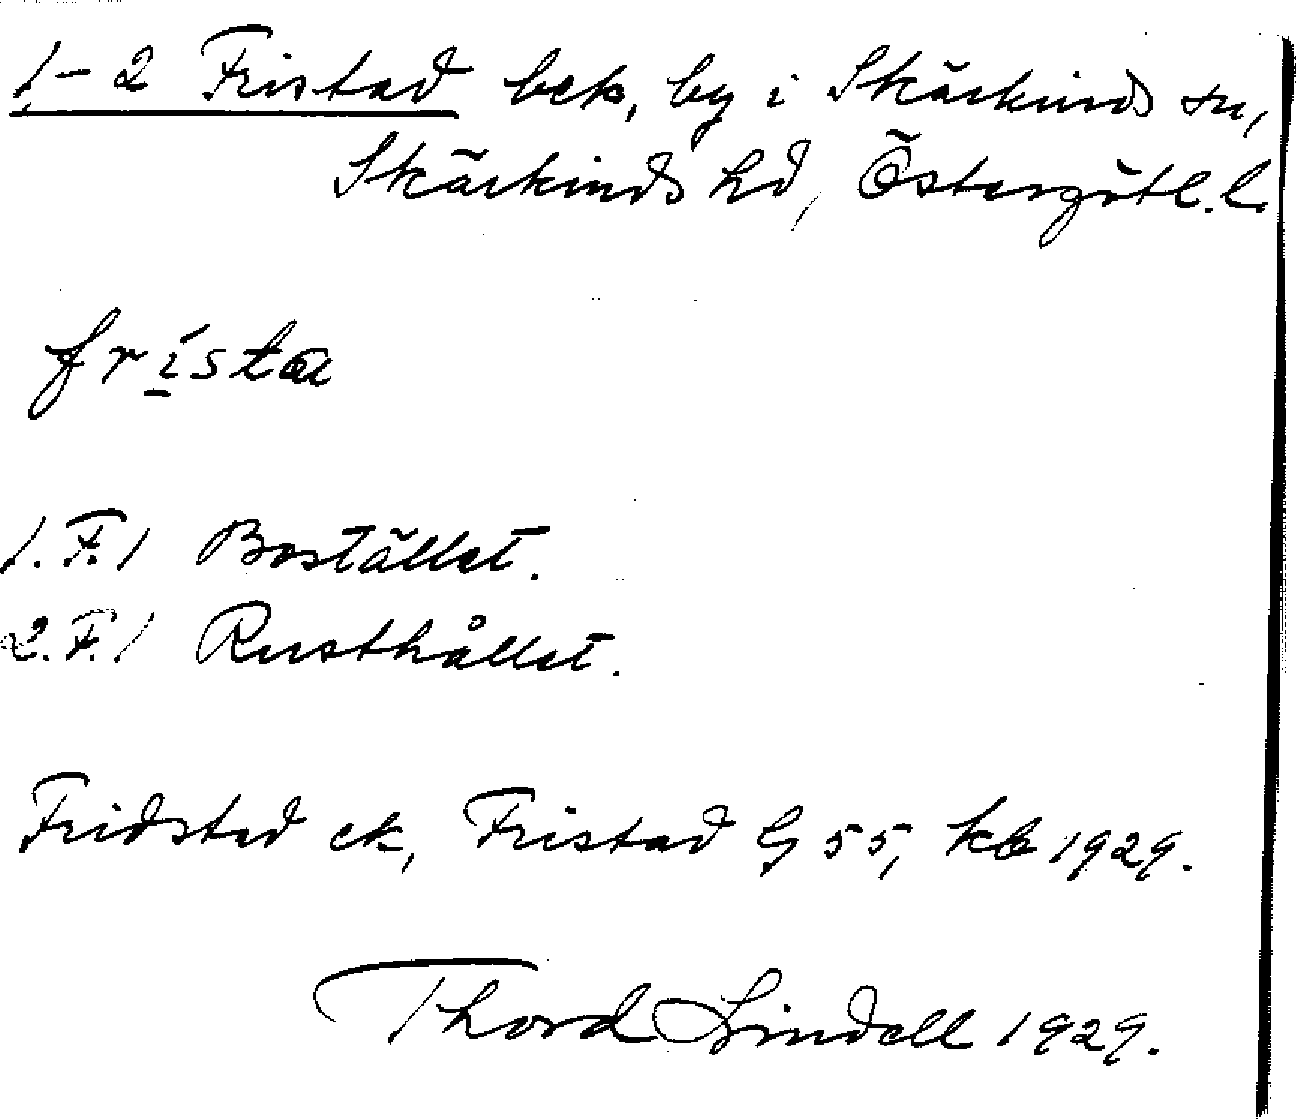 1-2 Fristad bek, by i Skärkinds sn,
Skärkinds hd, Östergötl. l.
frista
1. F. 1 Bostället.
2. F. 1 Rusthållet.
Fridstad ek, Fristad G 55, kb 1929.
Thord Lindell 1929.